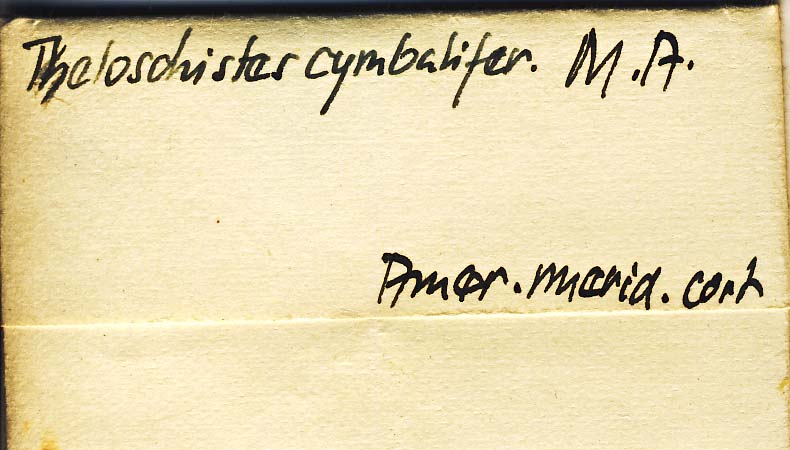 Theloschistes cymbalifer. M.A.
Amer. merid. cort